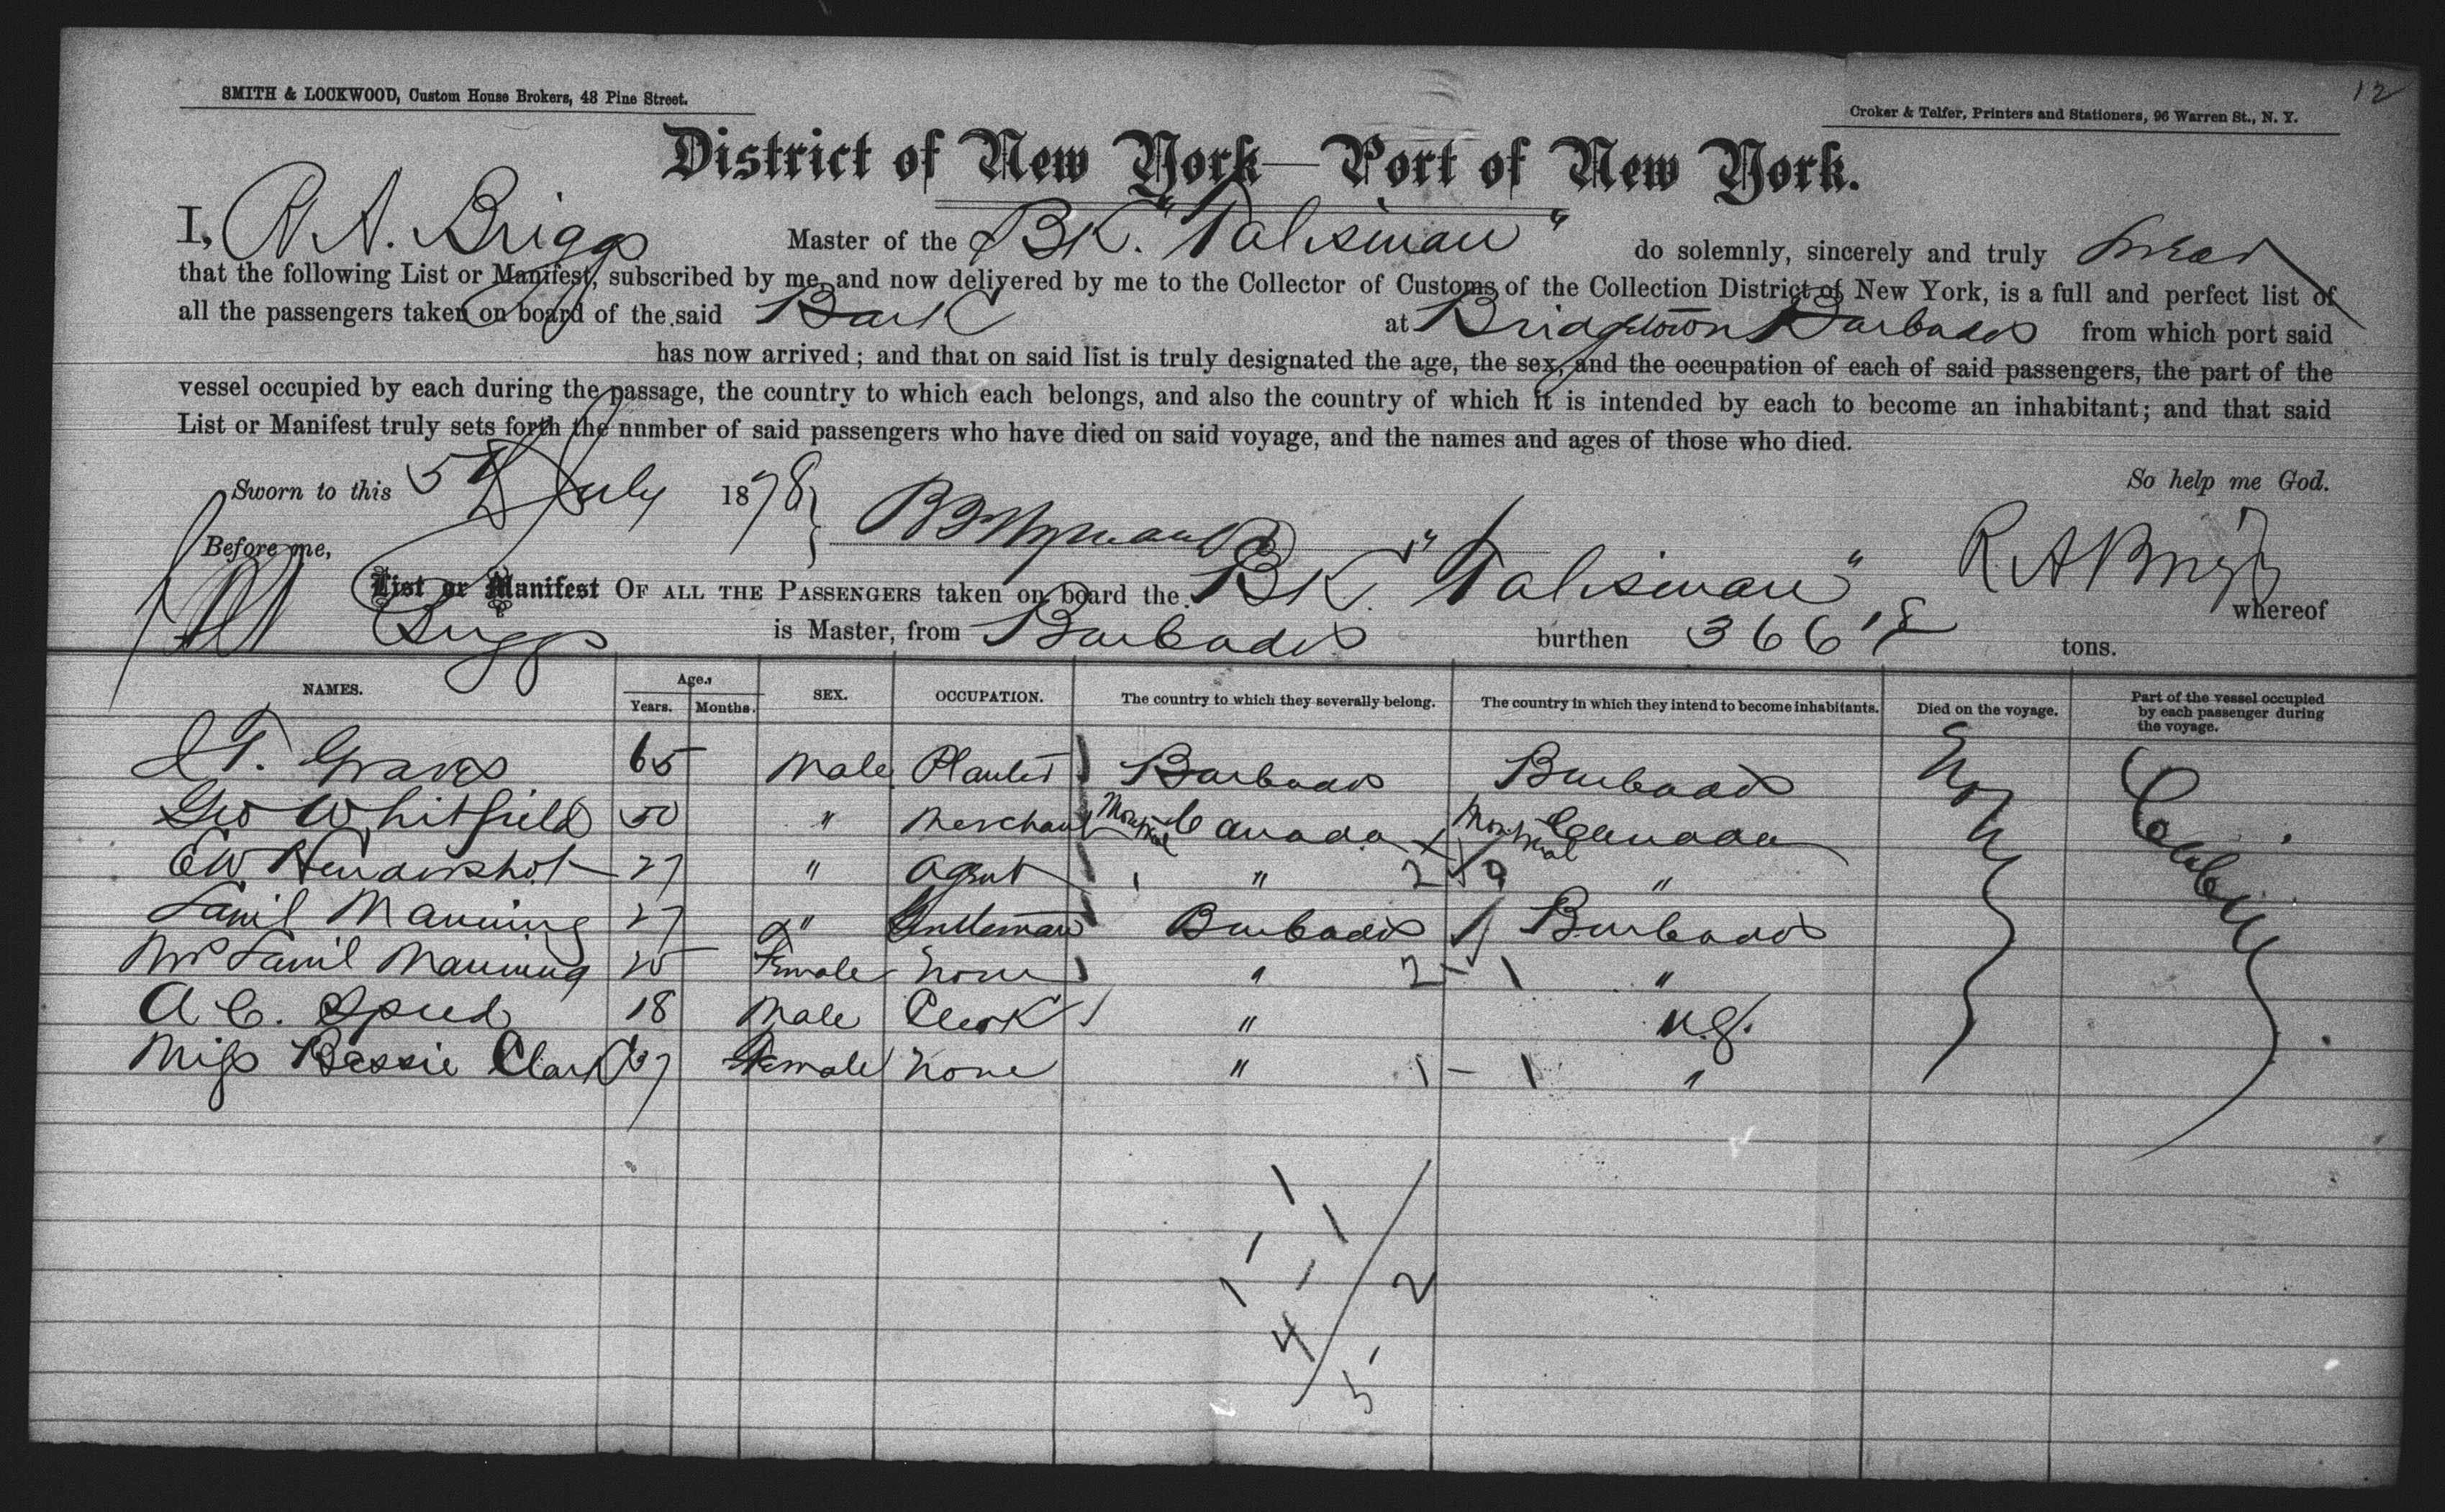 12
SMITH & LOCKWOOD, Custom House Brokers, 48 Pine Street.
Croker & Telfer, Printers and Stationers, 96 Warren St., N. Y.
District of New York—Port of New York.
I, R A. Briggs Master of the BK. "Talisman" do solemnly, sincerely and truly swear
that the following List or Manifest, subscribed by me, and now delivered by me to the Collector of Customs of the Collection District of New York, is a full and perfect list of
all the passengers taken on board of the said Bark at Bridgetown Barbados from which port said
has now arrived; and that on said list is truly designated the age, the sex, and the occupation of each of said passengers, the part of the
vessel occupied by each during the passage, the country to which each belongs, and also the country of which it is intended by each to become an inhabitant; and that said
List or Manifest truly sets forth the nnmber of said passengers who have died on said voyage, and the names and ages of those who died.
So help me God.
Sworn to this 5th July 1878
Before me, R A Briggs
List or Manifest OF ALL THE PASSENGERS taken on board the BK. "Talisman" whereof
Briggs is Master, from Barbados burthen 366 tons.
NAMES. Age. Years. Months. SEX. OCCUPATION. The country to which they severally belong. The country in which they intend to become inhabitants. Died on the voyage. Part of the vessel occupied by each passenger during the voyage.
T. Graves 65 Male Planter Barbados Barbados None Cabin
Geo Whitfield 50 " Merchant Montreal Canada Montreal Canada
E W Hendershot 27 " Agent " 2 "
Saml Manning 27 " Gentleman Barbados Barbados
Mrs Saml Manning 25 Female None " 2 - 1 "
A C. Speed 18 Male Clerk " U.S.
Miss Bessie Clark 37 Female None " 1 - 1 "
1
1
1
1 1
2
4
5